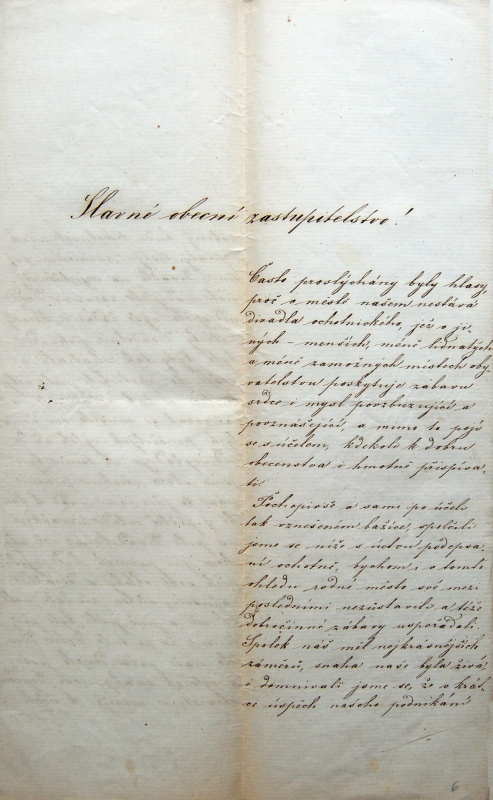 Slavné obecní zastupitelstvo!
Často proslýchány byly hlasy,
proč v městě našem nestává
divadla ochotnického, jež v ji-
ných - menších, méně lidnatých
a méně zámožných místech oby-
vatelstvu poskytuje zábavu
srdce i mysl povzbuzující a
povznášející, a mimo to pojí
se s účelem, kdekoli k dobru
obecenstva i hmotně přispíva-
ti.
Pochopivše a sami po účeli
tak vznešeném bažíce, spolčili
jsme se níže s úctou podepsa-
ní ochotně, bychom i v tomto
ohledu rodné město své mezi
posledními nezůstavili a též
dobročinné zábavy uspořádali.
Spolek náš měl nejkrásnějších
záměrů, snaha naše byla živá
i domnívali jsme se, že v krát-
ce úspěch našeho podnikání
6